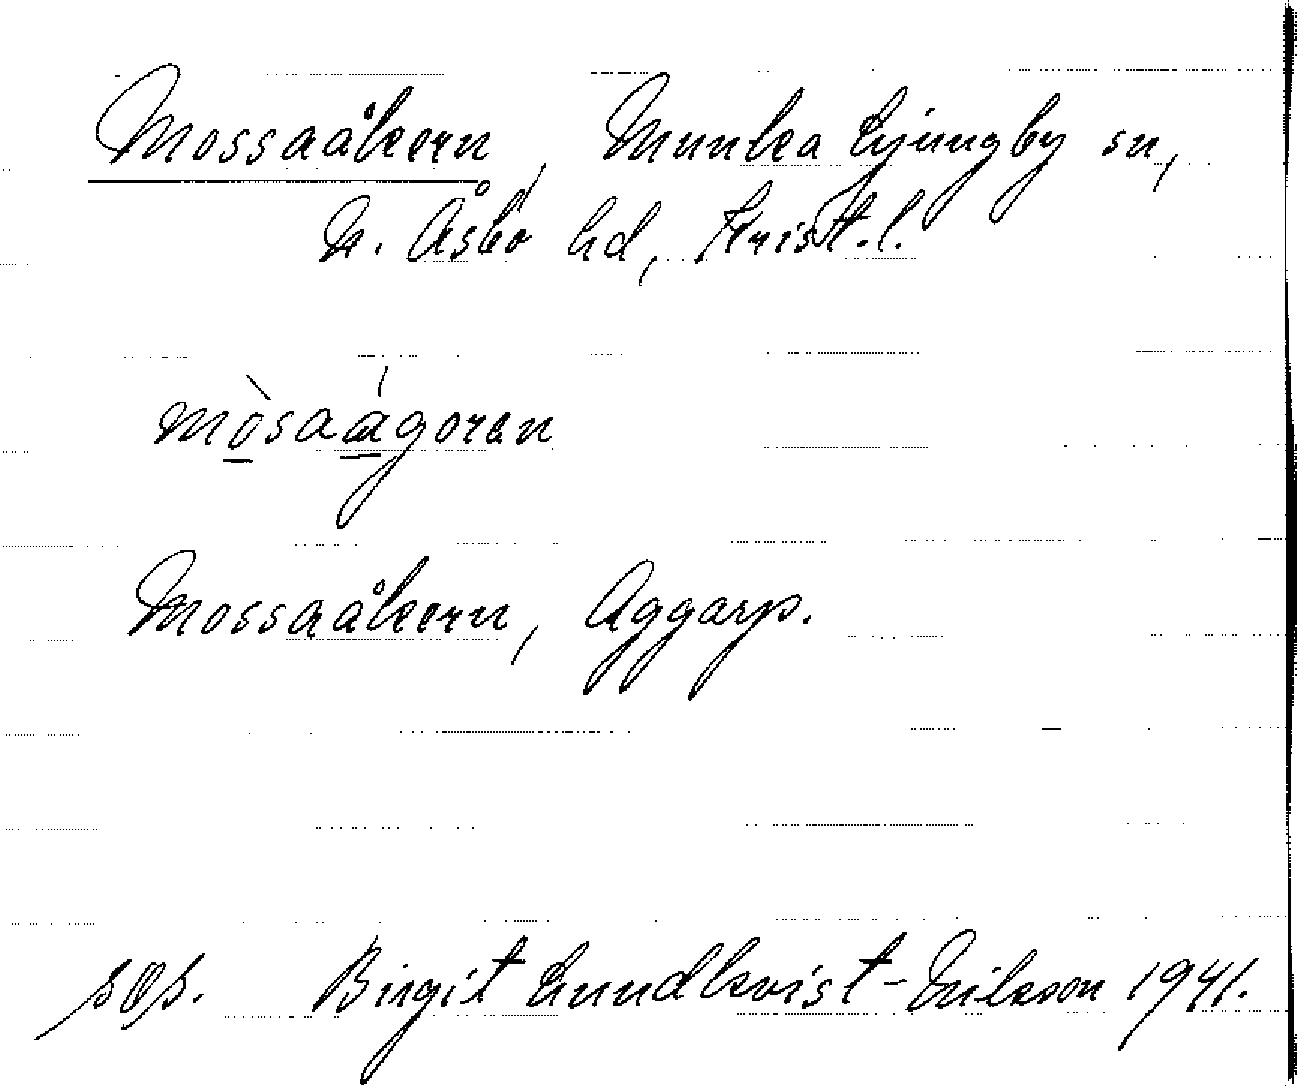 Mossaåkern, Munka Ljungby sn,
N. Åsbo hd, Krist.l.
mòsaágoren
Mossaåkern, Aggarp.
sOs. Birgit Lundkvist-Erikson 1941.